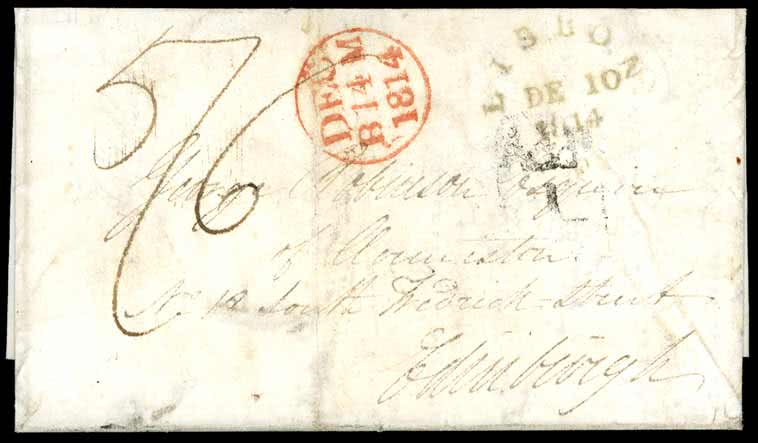 5/6
DE M
B 14
1814
LISBO
DE 10
1814
George Robinson Esquire
of
No 19 South Fredrick Street
Edinburgh